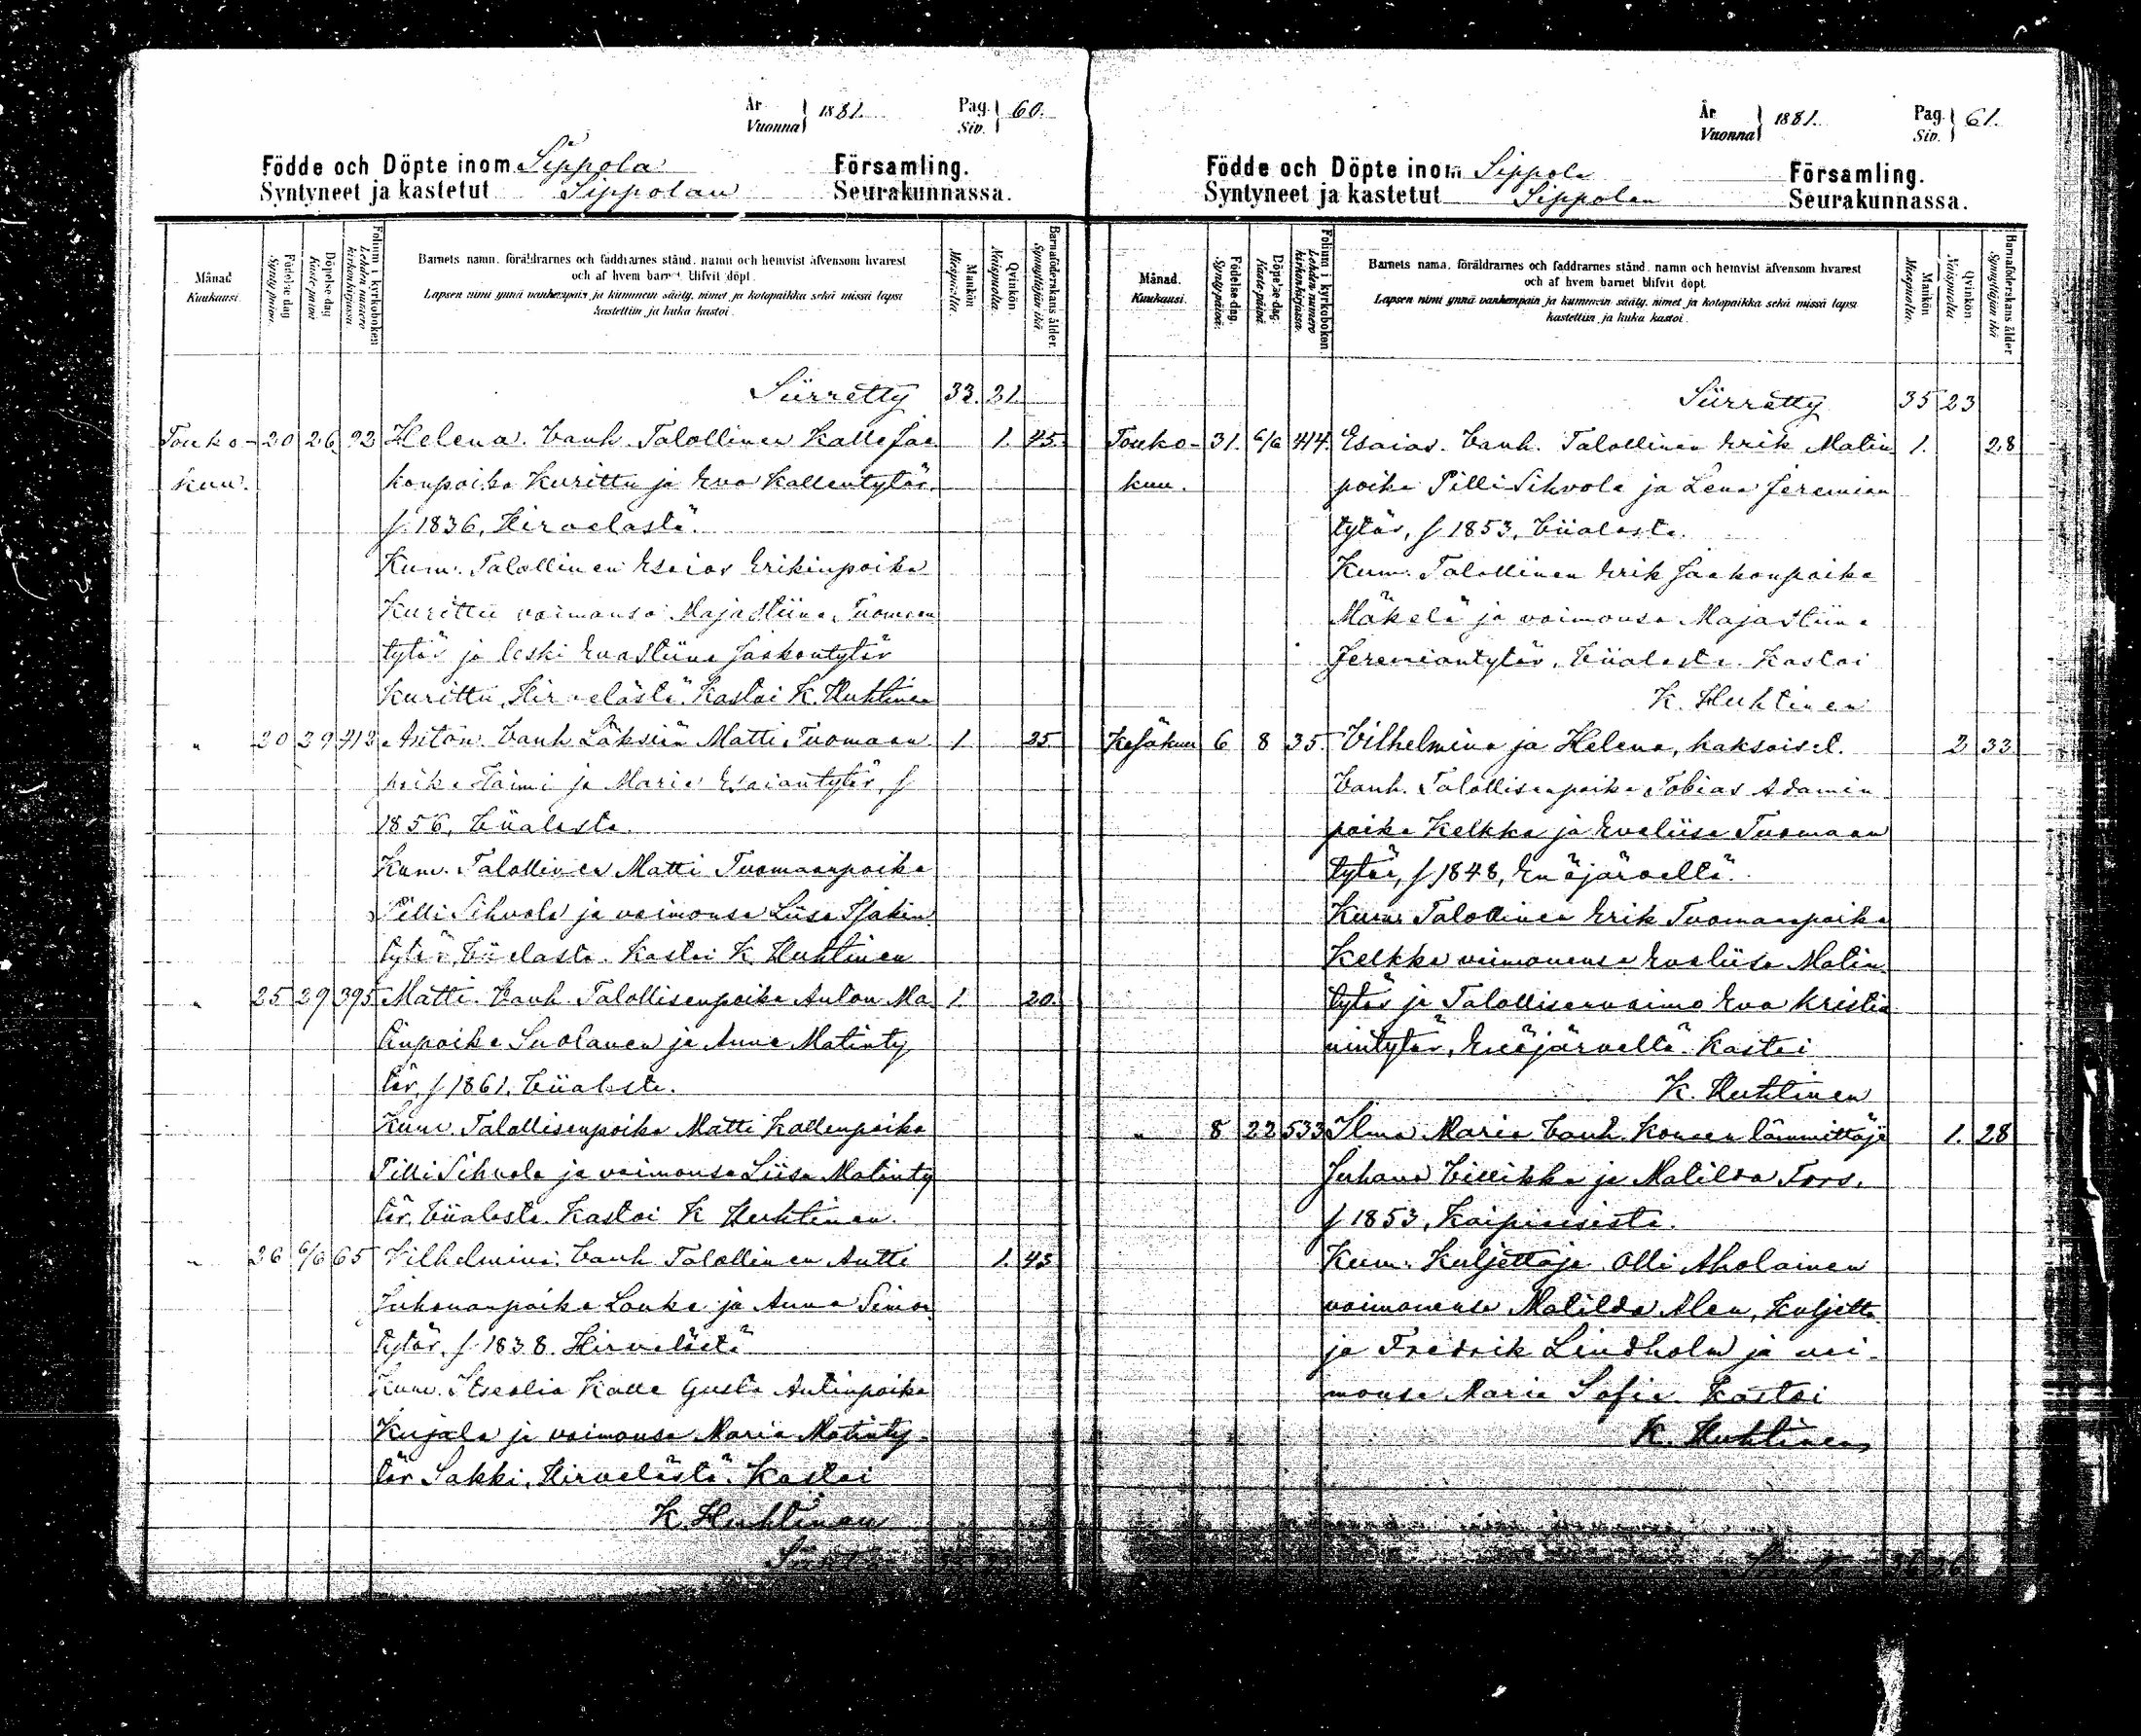 År
Vuonna } 1881.
Pag.
Siv. } 60.
Födde och Döpte inom Sippola Församling.
Syntyneet ja kastetut Sippolan Seurakunnassa.
Månad
Kuukausi.
Födelse dag
Syntypäivä.
Döpelse dag
Kaste päivä
Folium i kyrkoboken
Lehden numero kirkonkirjassa.
Barnets namn, föräldrarnes och faddrarnes stånd, namn och hemvist äfvensom hvarest
och af hvem barnet blifvit döpt.
Lapsen nimi ynnä vanhempain ja kummein sääty, nimet ja kotopaikka sekä missä lapsi
kastettiin ja kuka kastoi.
Mankön
Miespuolta.
Qvinkön
Naispuolta.
Barnaföderskans ålder.
Synnyttäjän ikä
Siirretty 33. 21.
Touko- 20 26 92 Helena. Vanh. Talollinen Kalle Jaa 1. 45.
kuu. konpoika Kurittu ja Eva Kallentytär
f. 1836, Hirvelästä.
Kum. Talollinen Esaias Erikinpoika
Kurittu vaimonsa Maja Stiina Tuomaan
tytär ja leski Eva Stiina Jaakontytär
Kurittu, Hirvelästä. Kastoi K. Huhtinen
" 20 29 412 Anton. Vanh. Läksiän Matti Tuomaan 1. 25.
poika Haimi ja Maria Esaiantytär, f
1856, Viialasta.
Kum. Talollinen Matti Tuomaanpoika
Pilli Sihvola ja vaimonsa Liisa Isakin
tytär, Viialasta. Kastoi K. Huhtinen
" 25 29 395 Matti. Vanh. Talollisenpoika Anton Ma 1. 20.
tinpoika Suolanen ja Anna Matinty
tär, f 1861. Viialasta.
Kum. Talollisenpoika Matti Kallenpoika
Pilli Sihvola ja vaimonsa Liisa Matinty
tär, Viialasta. Kastoi K Huhtinen.
" 26 6/6 65 Vilhelmina. Vanh. Talollinen Antti 1. 43
Juhonanpoika Louka ja Anna Simon
tytär, f. 1838. Hirvelästä
Kum. Itsellis Kalle Gusta Antinpoika
Kujala ja vaimonsa Maria Matinty-
tär Sakki, Hirvelästä. Kastoi
K. Huhtinen
År
Vuonna } 1881.
Pag.
Siv. } 61.
Födde och Döpte inom Sippola Församling.
Syntyneet ja kastetut Sippolan Seurakunnassa.
Månad.
Kuukausi.
Födelse dag.
Syntypäivä.
Döpelse dag.
Kaste päivä.
Folium i kyrkoboken
Lehden numero kirkonkirjassa.
Barnets namn, föräldrarnes och faddrarnes stånd, namn och hemvist äfvensom hvarest
och af hvem barnet blifvit döpt.
Lapsen nimi ynnä vanhempain ja kummein sääty, nimet ja kotopaikka sekä missä lapsi
kastettiin ja kuka kastoi.
Mankön
Miespuolta.
Qvinkön
Naispuolta
Barnaföderskans ålder
Synnyttäjän ikä
Siirretty 35 23
Touko- 31. 6/6 414. Esaias. Vanh. Talollinen Erik Matin 1. 28
kuu. poika Pilli Sihvola ja Lena Jeremian
tytär, f 1853, Viialasta.
Kum. Talollinen Erik Jaakonpoika
Mäkelä ja vaimonsa Maja Stiina
Jeremiantytär, Viialasta. Kastoi
K. Huhtinen
Kesäkuu 6 8 35. Vilhelmina ja Helena, kaksoiset. 2 33
Vanh. Talollisenpoika Tobias Adamin
poika Kelkka ja Evaliisa Tuomaan
tytär, f 1848, Enäjärveltä.
Kum. Talollinen Erik Tuomaanpoika
Kelkka vaimonensa Evaliisa Matin
tytär ja Talollisenvaimo Eva Kristia
nintytär, Enäjärveltä. Kastoi
K. Huhtinen
" 8 22 533 Ilma Maria Vanh. Koneen lämmittäjä 1. 28
Juhana Villikka ja Matilda Fors,
f 1853, Kaipiaisista.
Kum. Kuljettaja Olli Aholainen
vaimonensa Matilda Alen, Kuljetta
ja Fredrik Lindholm ja vai-
monsa Maria Sofia. Kastoi
K. Huhtinen